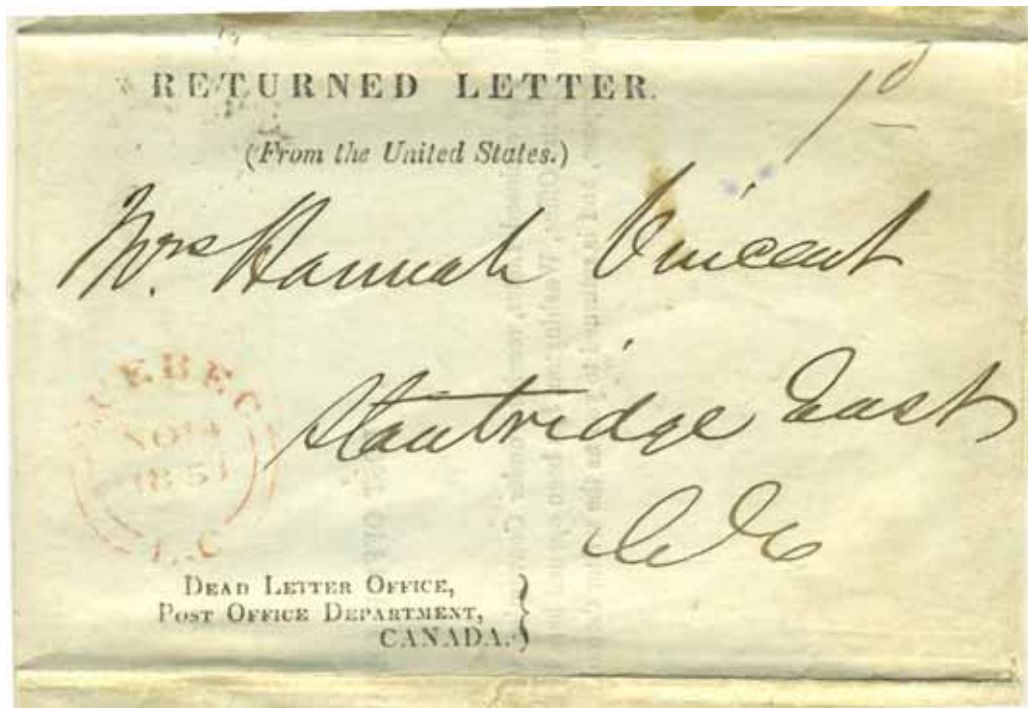 RETURNED LETTER.
(From the United States.)
1d
Mrs Hannah Vincent
Stanbridge East
QUEBEC
NO 14
1851
L.C
DEAD LETTER OFFICE,
POST OFFICE DEPARTMENT,
CANADA.